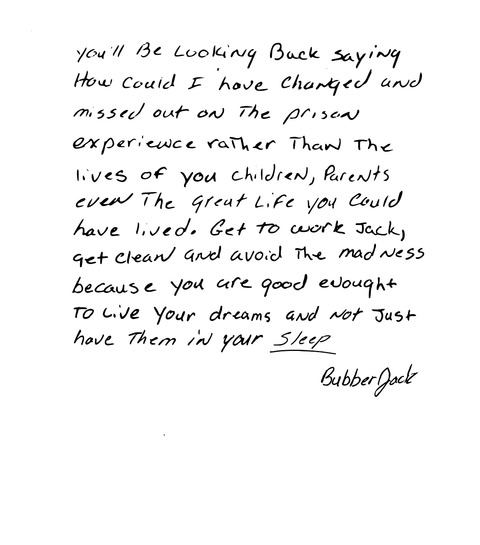 you'll Be Looking Back saying
How could I have changed and
missed out on The prison
experience rather Than The
lives of you children, Parents
even The great Life you could
have lived. Get to work Jack,
get clean and avoid The madness
because you are good enought
To Live your dreams and Not Just
have Them in your Sleep
BubberJack